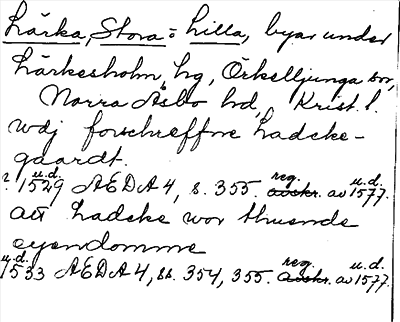 Lärka, Stora- o. Lilla, byar under
Lärkesholm, hg, Örkelljunga sn,
Norra Åsbo hd, Krist. l.
wdj forschreffne Ladcke-
gaardt.
u.d. reg. u.d.
? 1529 AEDA 4, s. 355. avskr. av 1577.
att Ladcke wor thuende
eyendomme
u.d. reg. u.d.
1533 AEDA 4, ss. 354, 355. avskr. av 1577.